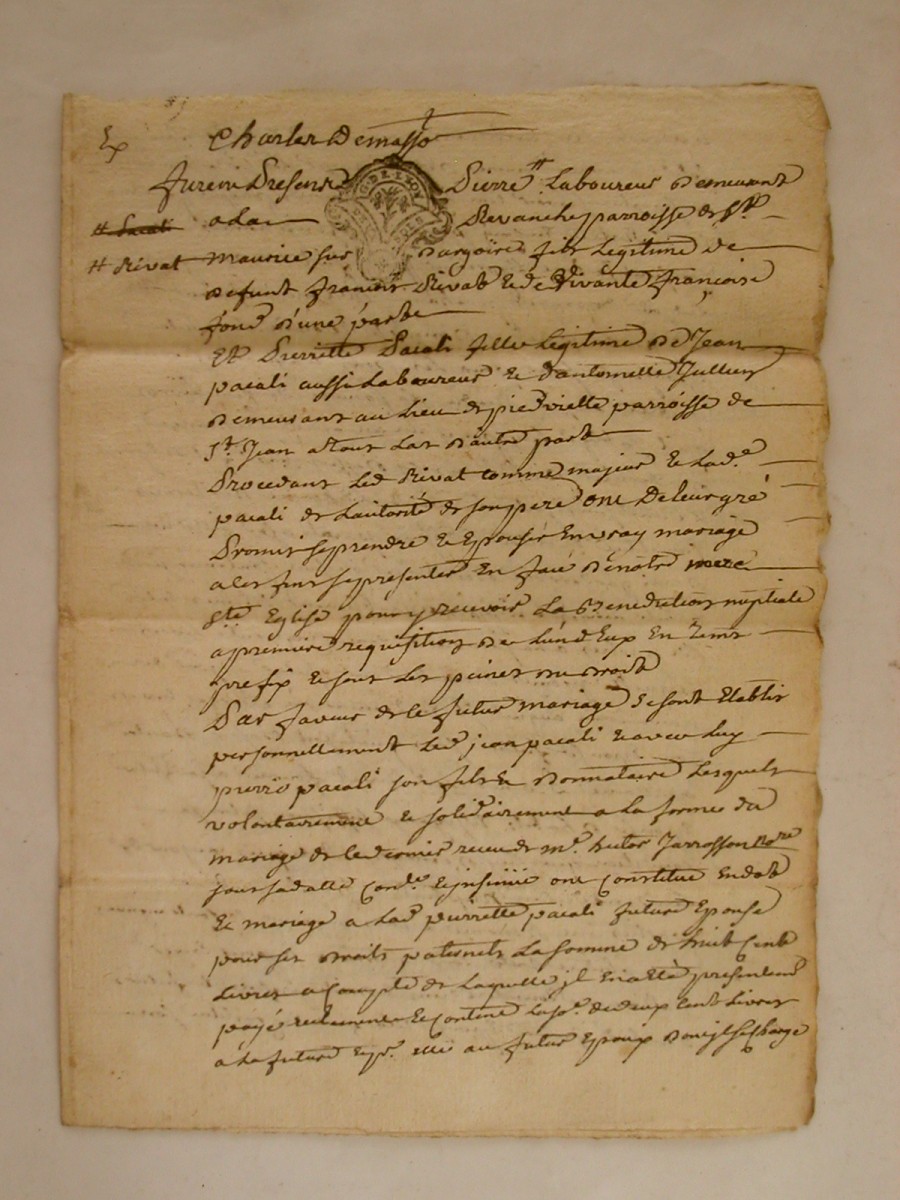 Charles Demasso
Furent Presens Pierre # Laboureur demeurant
# Pacali a La Revanche parroisse de St
# Rivat Maurice sur dargoire fils Legitime de
defunt francois Rivat & de vivante francoise
fond d'une part
Et Pierrette Pacali fille Legitime de Jean
pacali aussi Laboureur & dantoinette Jullien
demeurant au Lieu de parroisse de
St Jean a tour Las d'autre part
Procedant Led Rivat comme majeur & Lade
pacali de Lautorité de son pere ont de leur gré
Promis se prendre & Epouser En vray mariage
a ces fins se presenter En face de notre mere
Ste Eglise pour y recevoir La Benediction nuptiale
a premiere requisition de L'un d'Eux En tems
prefix & sous Les peines du droit
Par faveur de ce futur mariage se sont Etablis
personnellement Led jean pacali & avec Luy
pierre pacali son fils & donnataire Lesquels
volontairement & solidairement a La forme du
mariage de ce dernier receu de Me Jarrosson Nore
sous sa datte Conle & insinué ont Constitué En dot
& mariage a Lad pierrette pacali future Epouse
pour ses droits paternels La somme de huit Cent
Livres a Compte de Laquelle il En a Eté presentemt
payé reelement & Contant La so. de deux Cent Livres
a La future & pr. elle au futur Epoux dont il se Charge